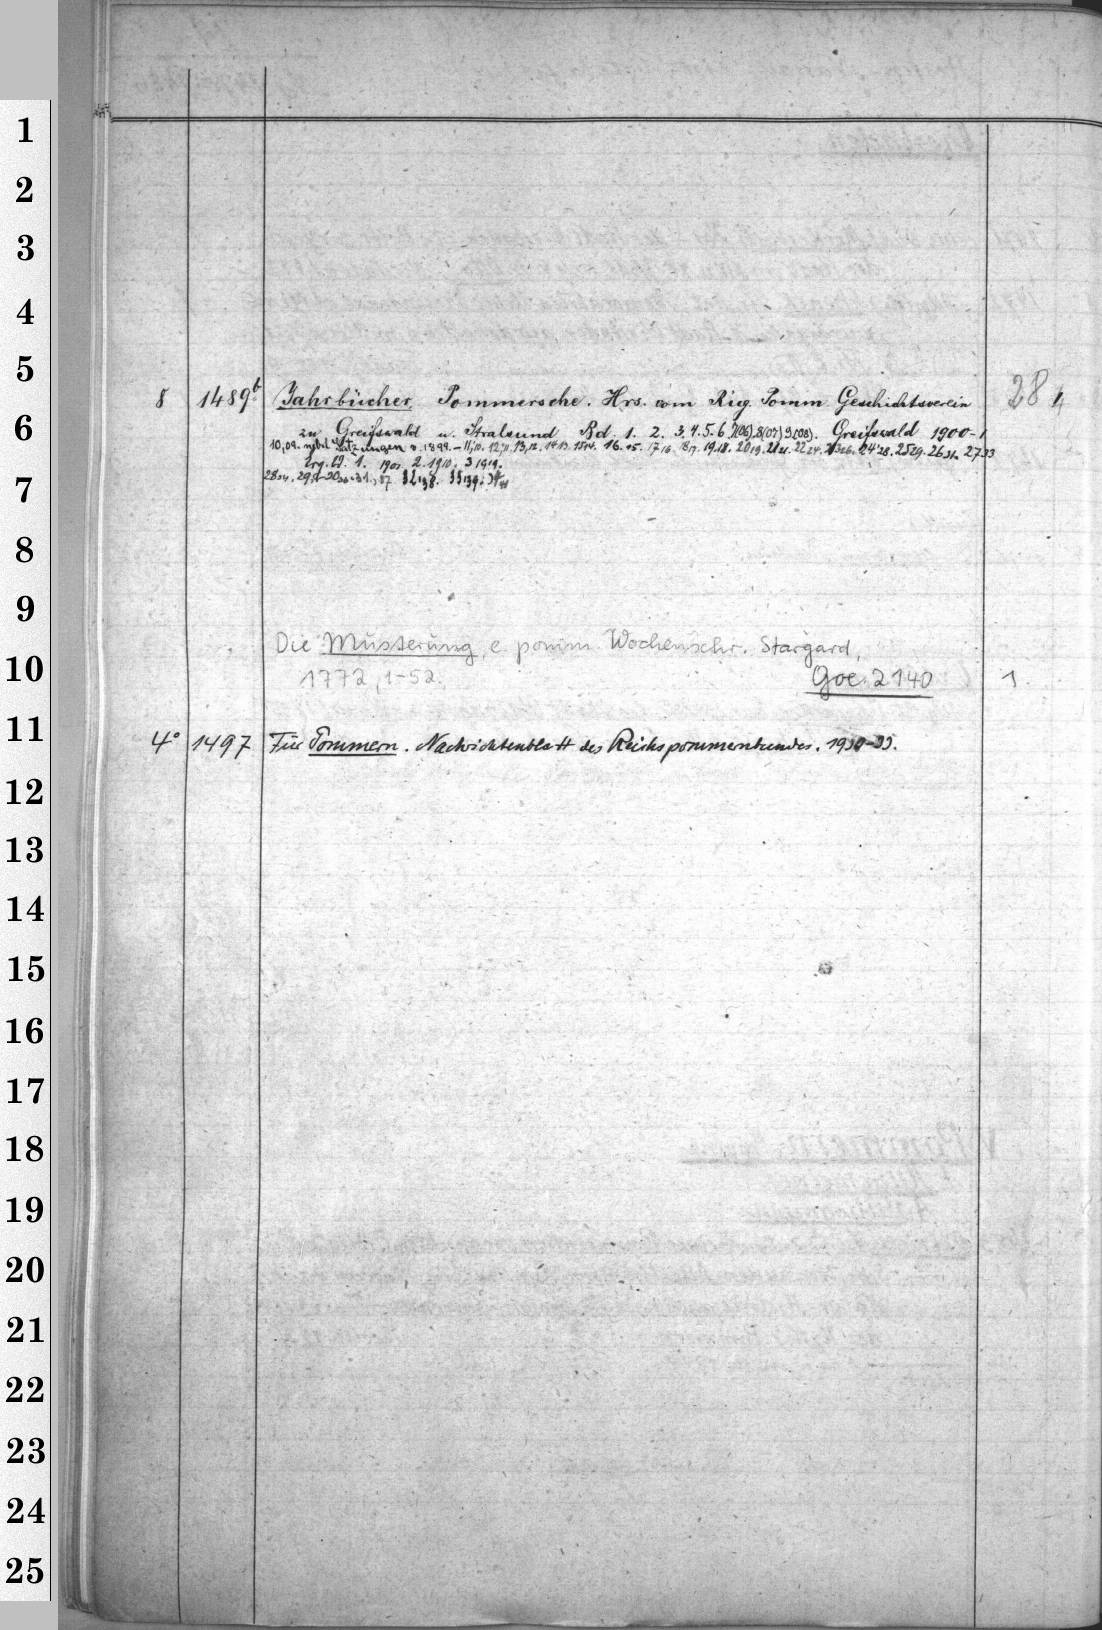 1
2
3
4
5
8 1489b Jahrbücher, Pommersche. Hrs. vom Rüg. Pomm. Geschichtsverein 28
6
zu Greifswald u. Stralsund Bd. 1. 2. 3. 4. 5. 6. 7(06). 8(07) 9(08). Greifswald 1900-
10,09. nebst Satzungen v. 1899. – 11,10. 12,11. 13,12. 14 13. 15 14. 16 15. 17 16. 18 17. 19 18. 20 19. 21 21. 22 24. 23 26. 24 28. 25 29. 26 31. 27 33
Erg. Bd. 1. 1903. 2. 1910. 3 1919.
28 34. 29 32 38. 33 39.
7
8
9
Die Musterung, e. pomm. Wochenschr. Stargard,
10
1772, 1-52. Goe. 2140 1
11
4° 1497 Für Pommern. Nachrichtenblatt des Reichspommernbundes.
12
13
14
15
16
17
18
19
20
21
22
23
24
25